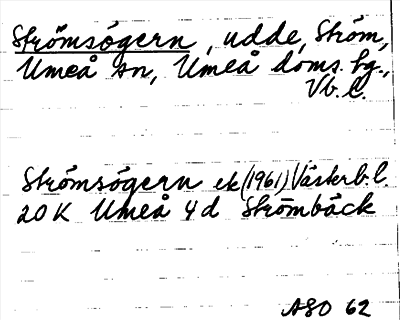 Strömsögern, udde, Ström,
Umeå sn, Umeå doms. hg.,
Vb. l.
Strömsögern ek (1961) Västerb. l.
20 K Umeå 4 d Strömbäck
ASO 62